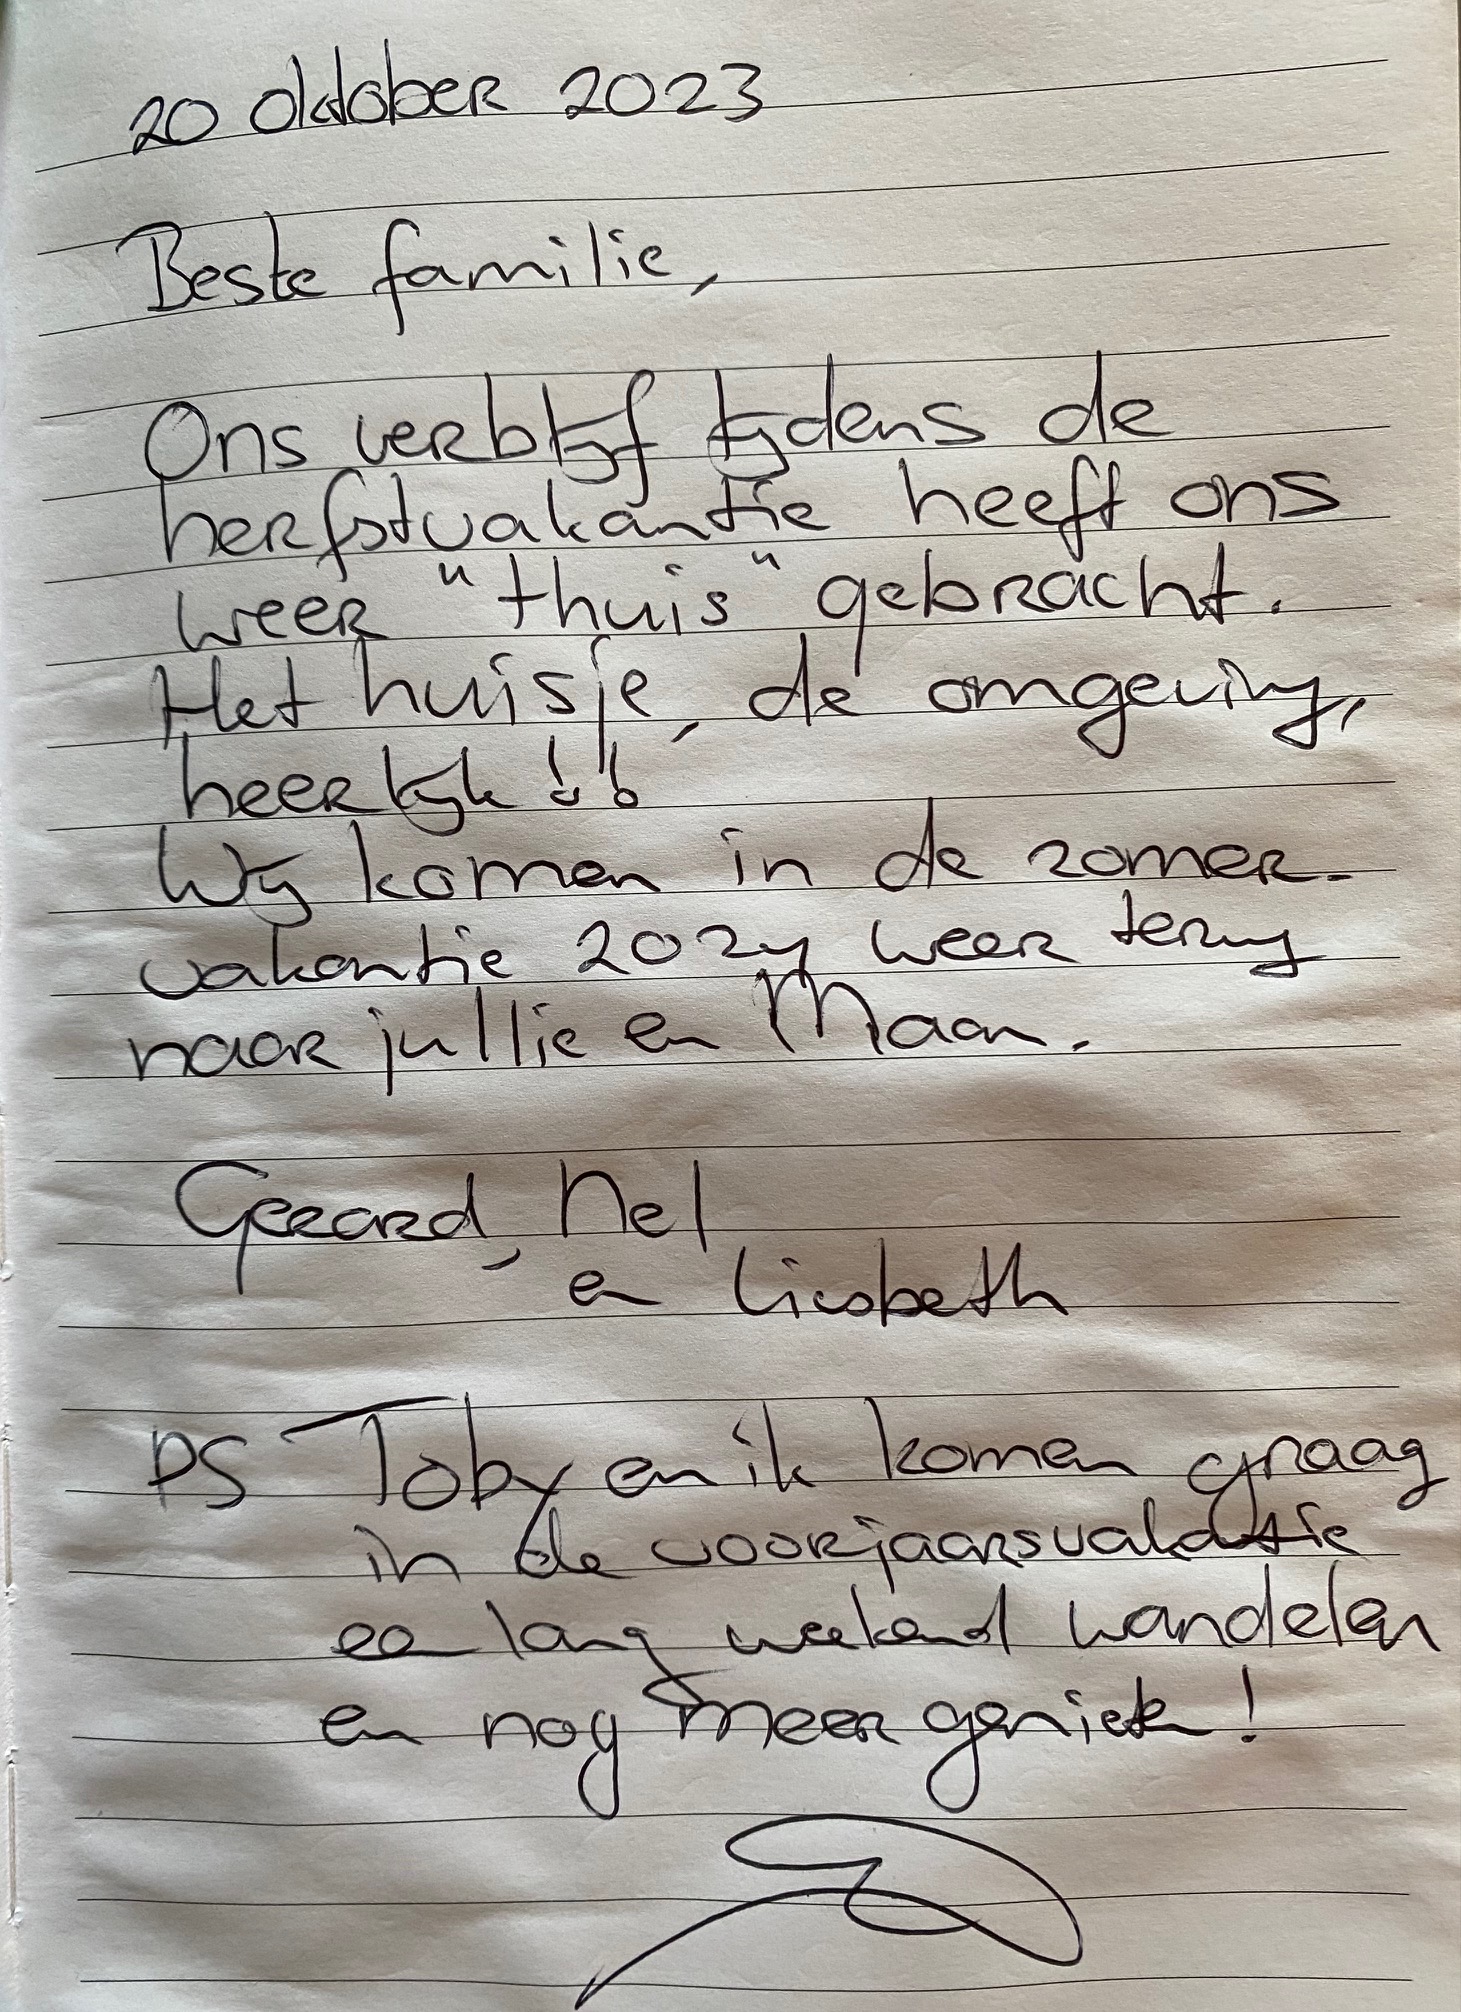 20 oktober 2023
Beste familie,
Ons verblijf tijdens de
herfstvakantie heeft ons
weer "thuis" gebracht.
Het huisje, de omgeving,
heerlijk!!
Wij komen in de zomer-
vakantie 2024 weer terug
naar jullie en Maan.
Gerard, Nel
en Liesbeth
PS Toby en ik komen graag
in de voorjaarsvakantie
een lang weekend wandelen
en nog meer genieten!